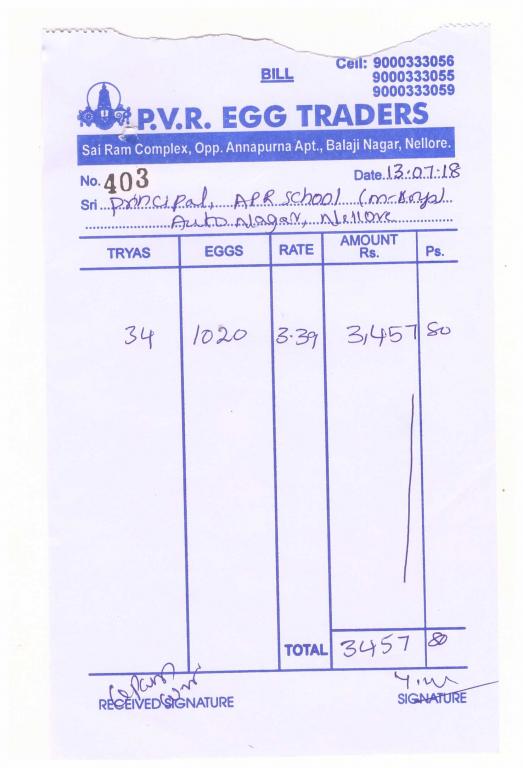 BILL
Cell: 9000333056
9000333055
9000333059
P.V.R. EGG TRADERS
Sai Ram Complex, Opp. Annapurna Apt., Balaji Nagar, Nellore.
No. 403 Date. 13.07.18
Sri Principal, APR School (m-Boys)
Auto Nagar, Nellore
TRYAS EGGS RATE AMOUNT Rs. Ps.
34 1020 3.39 3,457 80
TOTAL 3457 80
RECEIVED SIGNATURE SIGNATURE